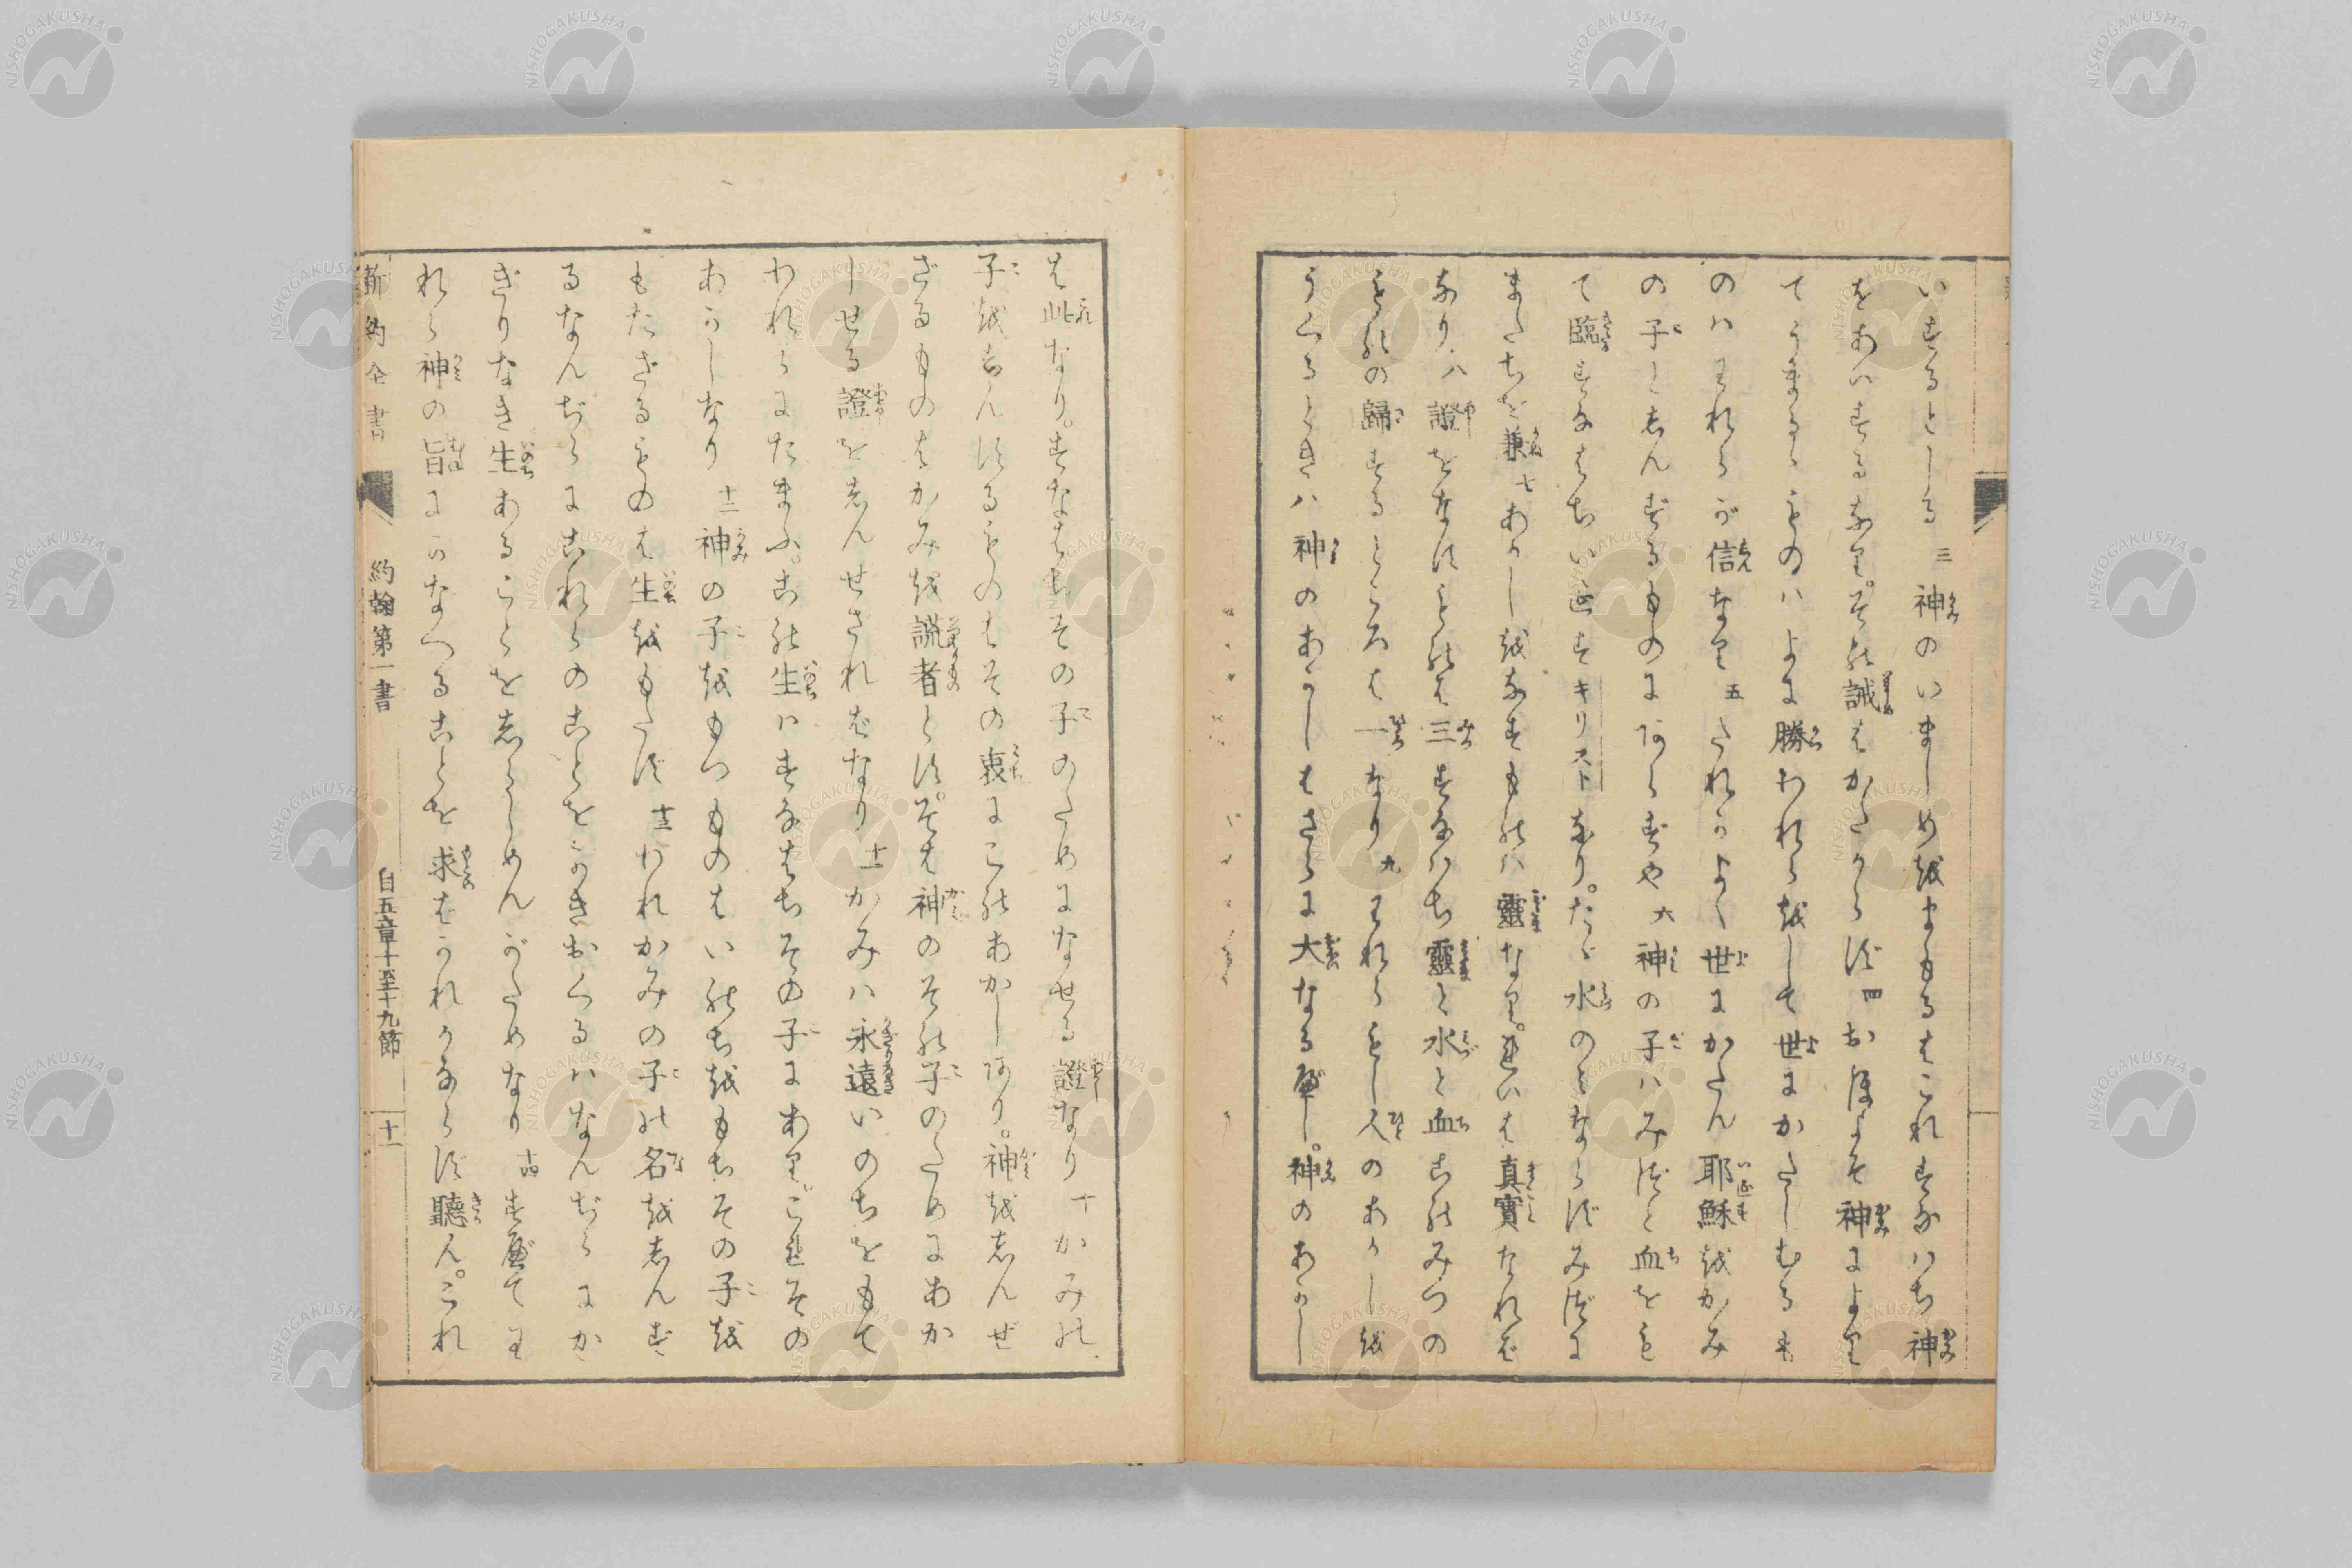 いするとしる 三 神のいましめをまもるはこれすなハち神
をあいするなり。その誡はかたからず 四 おほよそ神より
てうまるゝものハよに勝われらをして世にかたしむるも
のハわれらが信なり 五 たれかよく世にかたん耶穌をかみ
の子としんずるものにあらずや 六 神の子ハみづと血をも
て臨すなはちいゑすキリストなり。たゞ水のみならずみづに
またちを兼 七 あかしをなすものハ靈なり。靈は真實なれば
なり 八 證をなすものは三すなハち靈と水と血この みつの
ものの歸するところは一なり 九 われらもし人のあかしを
うくるときハ神のあかしはさらに大なるべし。神のあかし
は此なり。すなはちその子のためになせる證なり 十 かみの
子をしんずるものはその衷にこのあかしあり。神をしんぜ
ざるものはかみを謊者とす。そは神のその子のためにあか
しせる證をしんせざればなり 十一 かみハ永遠いのちをもて
われらにたまふ。この生ハすなはちその子にあり。これその
あかしなり 十二 神の子をもつものはいのちをもちその子を
もたざるものは生をもたず 十三 われかみの子の名をしんず
るなんぢらにこれらのことをかきおくるハなんぢらにか
ぎりなき生あることをしらしめんがためなり 十四 すべてわ
れら神の旨にかなへることを求ばかれかならず聽ん。これ
新約全書 約翰第一書 自五章十至十九節 十一